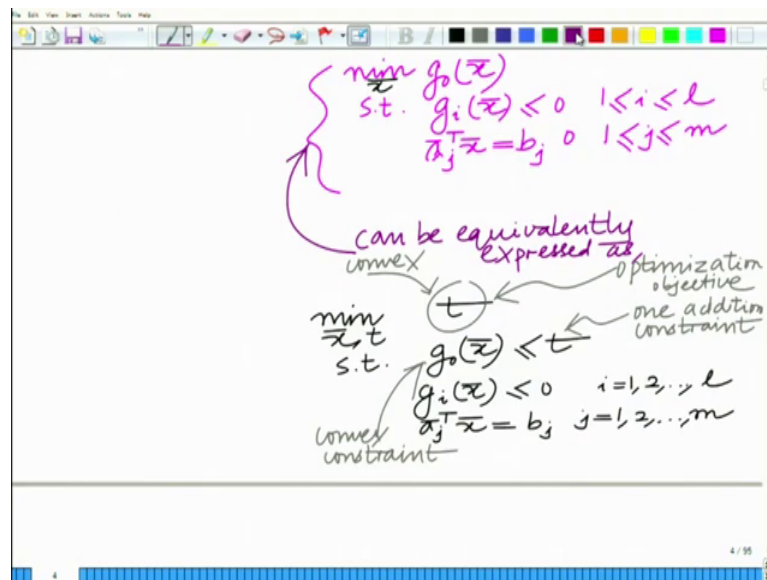 File Edit View Insert Actions Tools Help
B I
min g₀(x̄)
x̄
s.t. gᵢ(x̄) ≤ 0 1 ≤ i ≤ l
āⱼᵀx̄ = bⱼ 0 1 ≤ j ≤ m
can be equivalently
expressed as
convex
optimization
objective
t
min
x̄, t
one addtion
constraint
s.t. g₀(x̄) ≤ t
gᵢ(x̄) ≤ 0 i=1,2,..,l
āⱼᵀx̄ = bⱼ j=1,2,...,m
convex
constraint
4 / 95
4